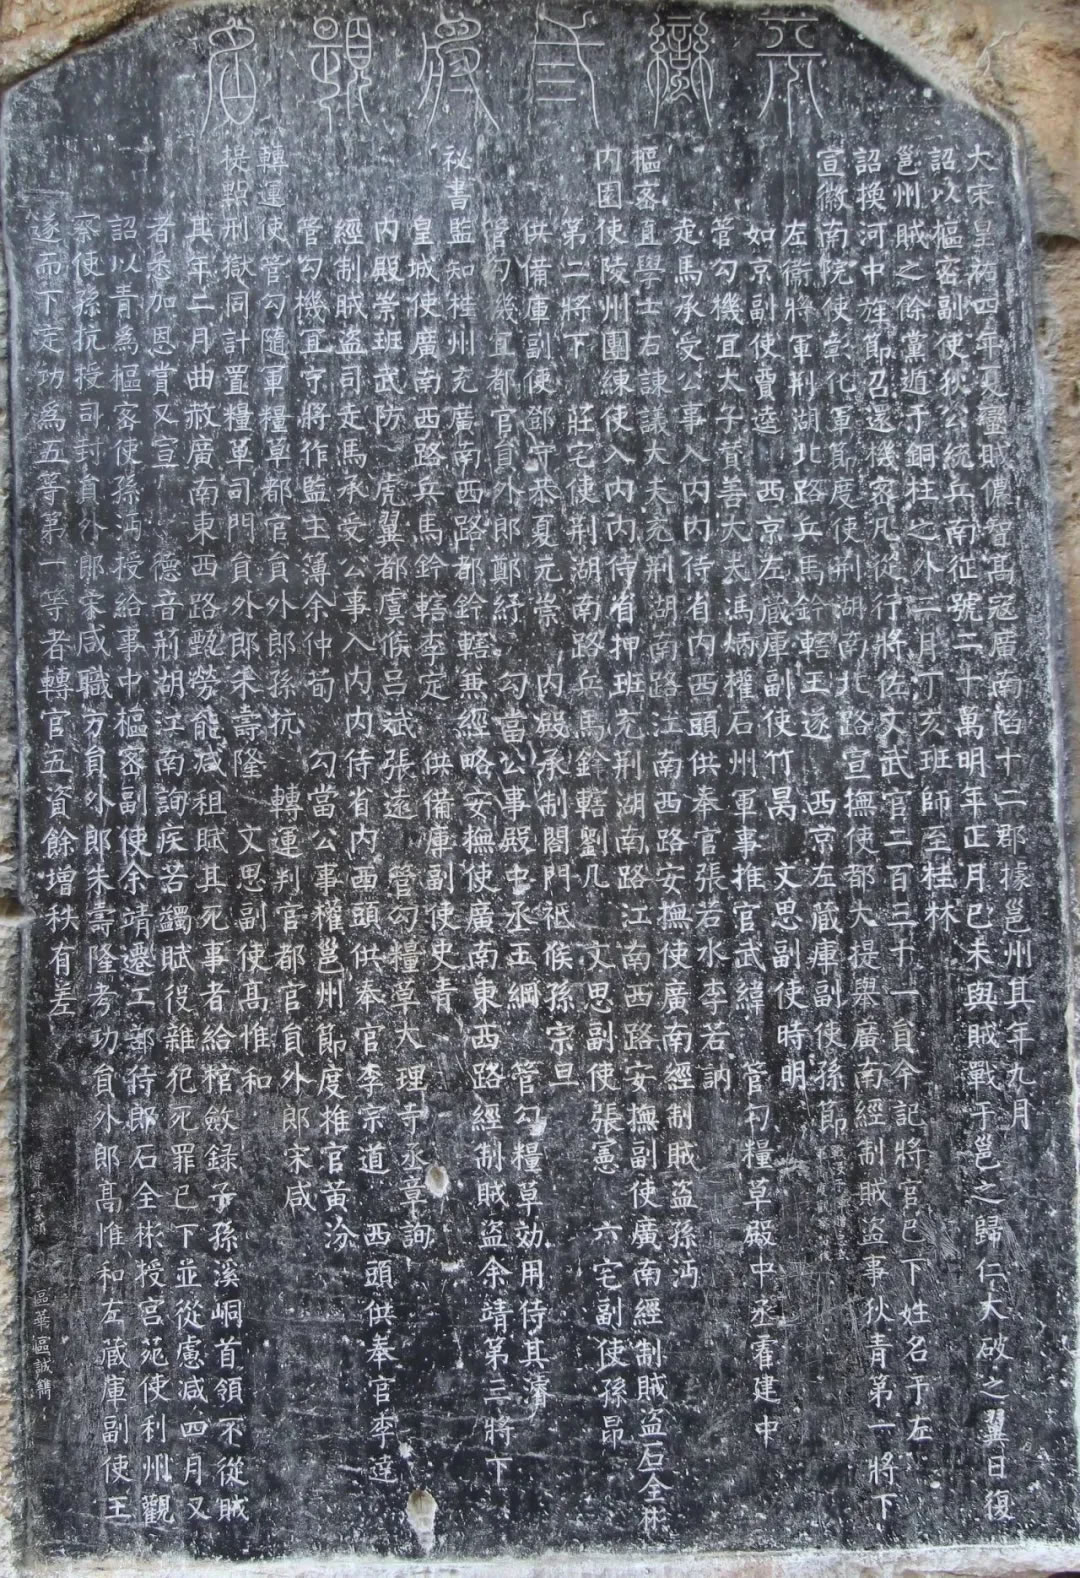 平蠻三將題名
大宋皇祐四年夏蠻賊儂智髙寇廣南陷十二郡據邕州其年九月
詔以樞密副使狄公統兵南征號二十萬明年正月已未與賊戰于邕之歸仁大破之翼日復
邕州賊之餘黨遁于銅柱之外二月丁亥班師至桂林
詔換河中旌節召還機密凡從行將佐文武官二百三十一員今記將官已下姓名于左
宣徽南院使彰化軍節度使荆湖南北路宣撫使都大提舉廣南經制賊盜事狄青第一將下
左衞將軍荆湖北路兵馬鈐轄王遂 西京左藏庫副使孫節
如京副使賈逵 西京左藏庫副使竹昺 文思副使時明
管勾機宜太子賛善大夫馮炳 權石州軍事推官武緯 管勾糧草殿中丞霍建中
走馬承受公事入内内侍省内西頭供奉官張若水李若訥
樞密直學士右諫議大夫充荆湖南路江南西路安撫使廣南經制賊盜孫沔
内園使陵州團練使入内内侍省押班充荆湖南路江南西路安撫副使廣南經制賊盜石全彬
第二將下 莊宅使荆湖南路兵馬鈐轄劉几 文思副使張憲 六宅副使孫昂
供備庫副使鄧守恭夏元崇 内殿承制閤門祗候孫宗旦
管勾機宜都官員外郎鄭紓 勾當公事殿中丞王綱 管勾糧草効用侍其濬
祕書監知桂州充廣南西路都鈐轄兼經略安撫使廣南東西路經制賊盜余靖第三將下
皇城使廣南西路兵馬鈐轄李定 供備庫副使史青
内殿崇班武防 虎翼都虞候呂斌張遠 管勾糧草大理寺丞章詢
經制賊盜司走馬承受公事入内内侍省内西頭供奉官李宗道 西頭供奉官李逵
管勾機宜守將作監主簿余仲荀 勾當公事權邕州節度推官黃汾
轉運使管勾隨軍糧草都官員外郎孫抗 轉運判官都官員外郎宋咸
提㸃刑獄同計置糧草司門員外郎朱壽隆 文思副使髙惟和
其年二月曲赦廣南東西路甄勞能減租賦其死事者給棺斂録子孫溪峒首領不從賊
者悉加恩賞又宣 德音荊湖江南詢疾苦蠲賦役雜犯死罪已下並從慮減四月又
詔以青為樞密使孫沔授給事中樞密副使余靖遷工部侍郎石全彬授宫苑使利州觀
察使孫抗授司封員外郎宋咸職方員外郎朱壽隆考功員外郎髙惟和左藏庫副使王
遂而下定功為五等第一等者轉官五資餘增秩有差
區華區誠鐫